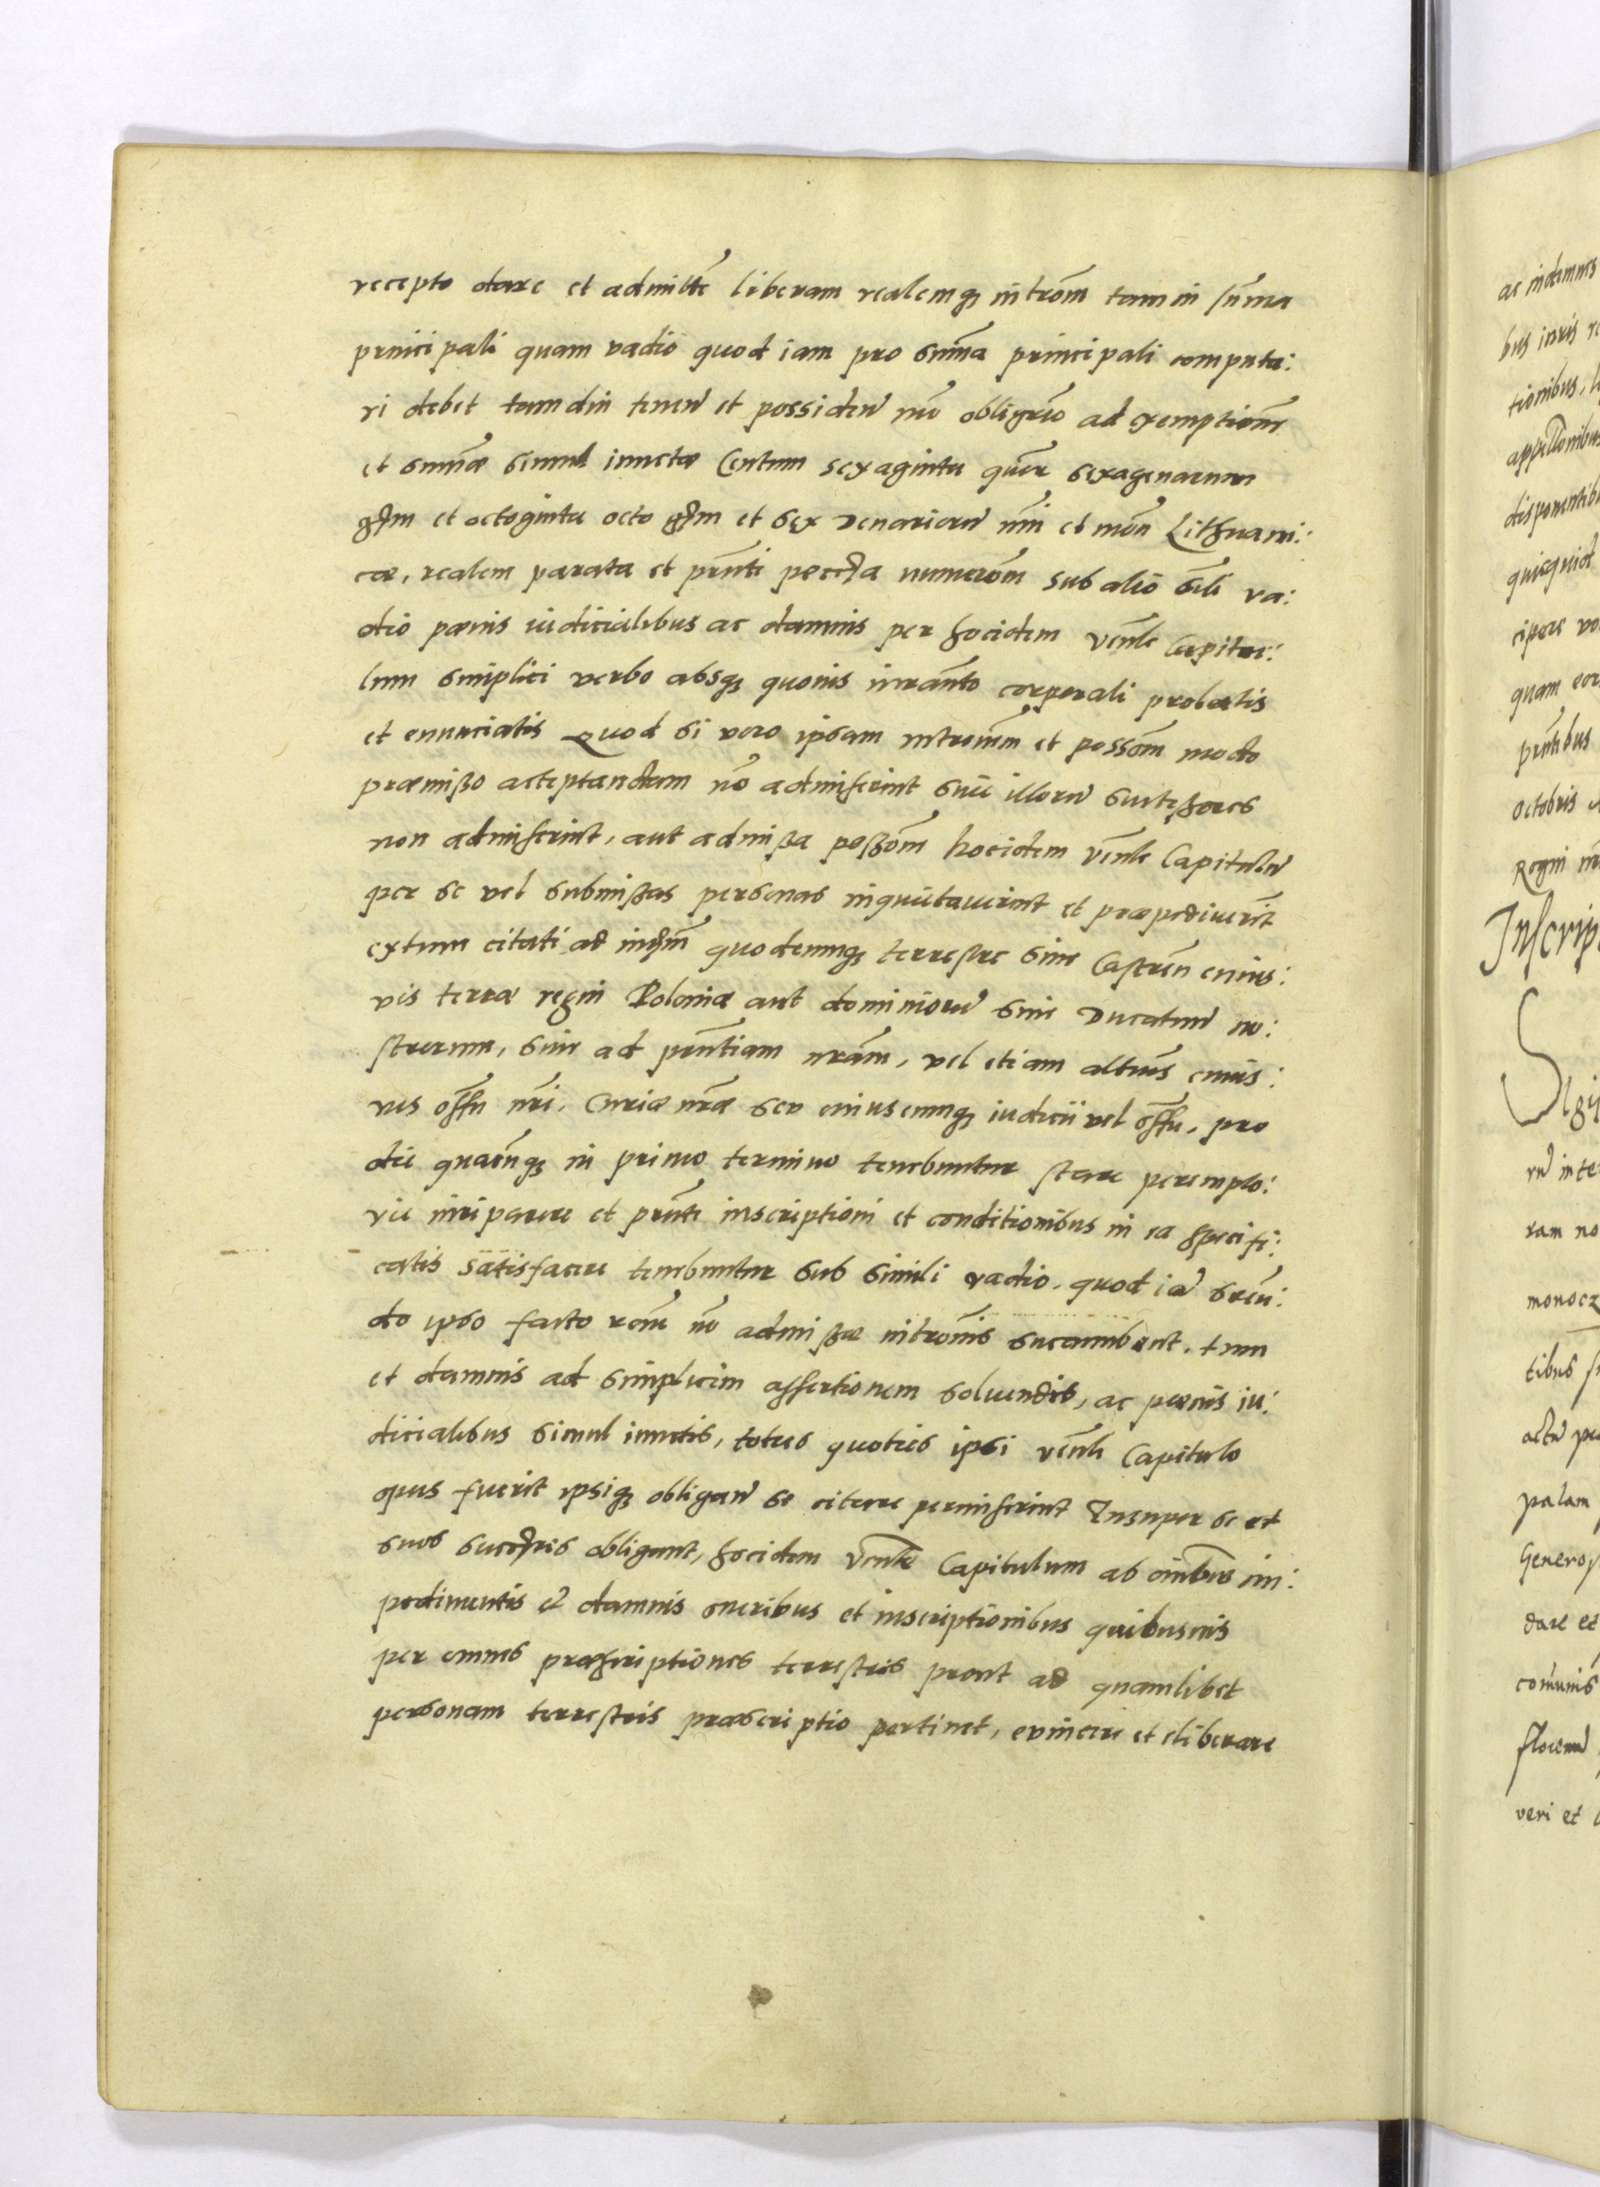 recepto dare et admitte liberam realemq3 introm tam in summa
principali quam vadio quod iam pro summa principali computa:
ri debet tamdiu tenen et possiden no obligando ad exemptionem
et summæ simul iunctæ Centum sexaginta sexagenarum
grm et octoginta octo grm et sex denariorum nri et mon Lithuani:
cæ, realem parata et prnti pecunia numerom sub alio simili va:
dio pænis iudicialibus ac damnis per hocidem vente Capitu:
lum simplici verbo absq3 quovis iuranto corporali probatis
et enunciatis Quod si vero ipsam intromm et possom modo
præmißo acceptandam no admiserint sive illoru succeßores
non admiserint, aut admißa poßom hocidem vente Capitulu
per se vel submißas personas inquietaverint et præpediverint
extum citati ad iudm quodcunq3 terrestre sive Castren cuius:
vis terræ regni Poloniæ aut dominioru sive Ducatuu no:
strorum, sive ad prntiam nram, vel etiam alterius cuius:
vis offu nri. Curiæ nræ seu cuiuscunq3 iudicii vel offu, pro
die quacunq3 in primo termino tenebuntur stare perempto:
rie iuri parere et prnti inscriptioni et conditionibus in ea specifi:
catis satisfacere tenebuntur sub simili vadio. quod ia secun:
do ipso facto rone no admißæ introms succumbent. tum
et damnis ad simplicem assertionem solvendis, ac pænis iu:
dicialibus simul iunctis, toties quoties ipsi venli Capitulo
opus fuerit ipsiq3 obligan se citare permiserint Insuper se et
suos succeßres obligant, hocidem vente Capitulum ab omibus im:
pedimentis et damnis oneribus et inscriptionibus quibusvis
per omnes præscriptiones terrestris pront ad quamlibet
personam terrestris præscriptio pertinet, evincere et eliberare
ac indemnes
bus iuris
tionibus,
appellonibus
disponentib
quicquid
cipere
quam eor
prntibus
octobris
Regni
Inscrip

ru inte
ram no
monocz
tibus
actu
palam
Generos
dare et
comunis

veri et